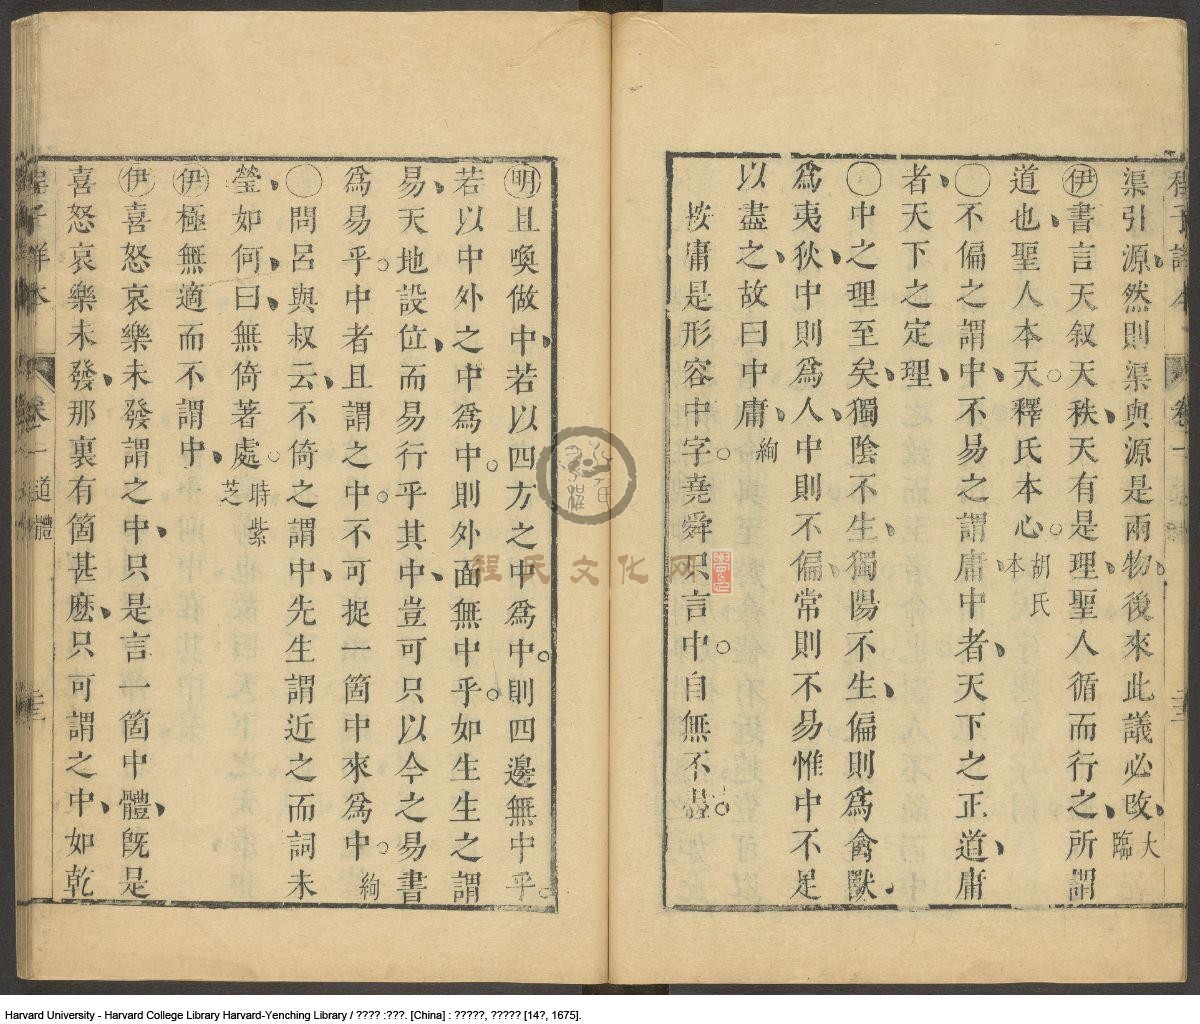 渠引源然則渠與源是兩物後來此議必改大臨
伊書言天叙天秩天有是理聖人循而行之所謂
道也聖人本天釋氏本心胡氏本
〇不偏之謂中不易之謂庸中者天下之正道庸
者天下之定理
〇中之理至矣獨陰不生獨陽不生偏則爲禽獸
爲夷狄中則爲人中則不偏常則不易惟中不足
以盡之故曰中庸絢
按庸是形容中字堯舜只言中自無不盡
明且喚做中若以四方之中爲中則四邊無中乎
若以中外之中爲中則外面無中乎如生生之謂
易天地設位而易行乎其中豈可只以今之易書
爲易乎中者且謂之中不可捉一箇中來爲中絢
〇問呂與叔云不倚之謂中先生謂近之而詞未
瑩如何曰無倚著處時紫芝
伊極無適而不謂中
伊喜怒哀樂未發謂之中只是言一箇中體旣是
喜怒哀樂未發那裏有箇甚麽只可謂之中如乾
程子詳本 卷一 道體
程氏文化网
Harvard University - Harvard College Library Harvard-Yenching Library / ???? :???. [China] : ?????, ????? [14?, 1675].